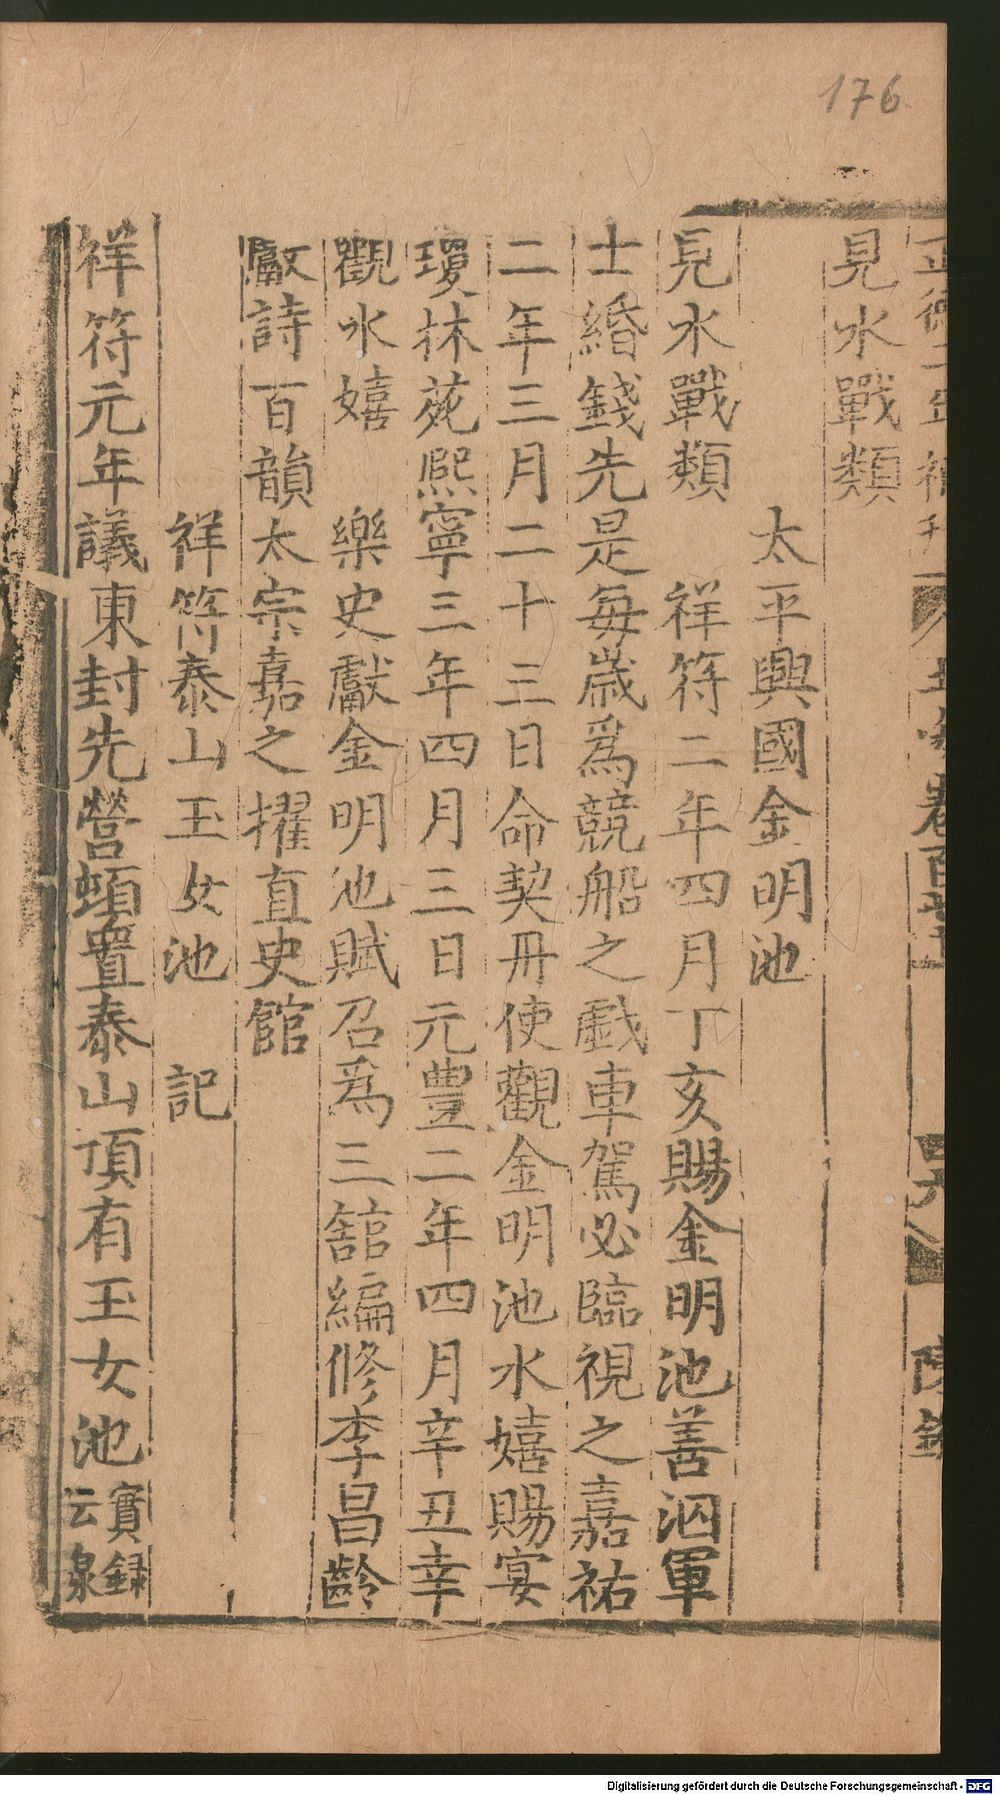 176
見水戰類
太平興國金明池
見水戰類　祥符二年四月丁亥賜金明池善泅軍
士緡錢先是每歲爲競船之戲車駕必臨視之嘉祐
二年三月二十三日命契丹使觀金明池水嬉賜宴
瓊林苑熙寧三年四月三日元豊二年四月辛丑幸
觀水嬉　樂史獻金明池賦召爲三舘編修李昌齡
獻詩百韻太宗嘉之擢直史館
祥符泰山玉女池　記
祥符元年議東封先營頓置泰山頂有玉女池實録
云泉
Digitalisierung gefördert durch die Deutsche Forschungsgemeinschaft - DFG